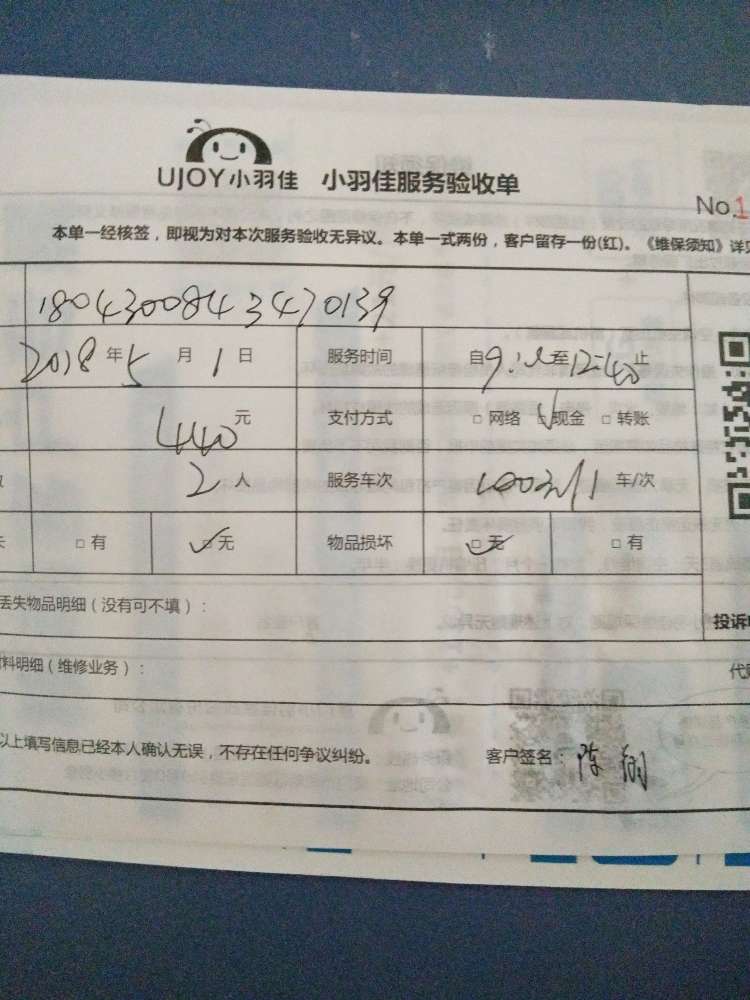 UJOY小羽佳 小羽佳服务验收单
No.1
本单一经核签，即视为对本次服务验收无异议。本单一式两份，客户留存一份(红)。《维保须知》详见
1804300843470139
2018年5月1日 服务时间 自9: 至12:40止
440元 支付方式 □网络 □现金 □转账
2人 服务车次 车/次
□有 □无 物品损坏 □无 □有
丢失物品明细（没有可不填）：
投诉
料明细（维修业务）：
代
以上填写信息已经本人确认无误，不存在任何争议纠纷。 客户签名：陈翔